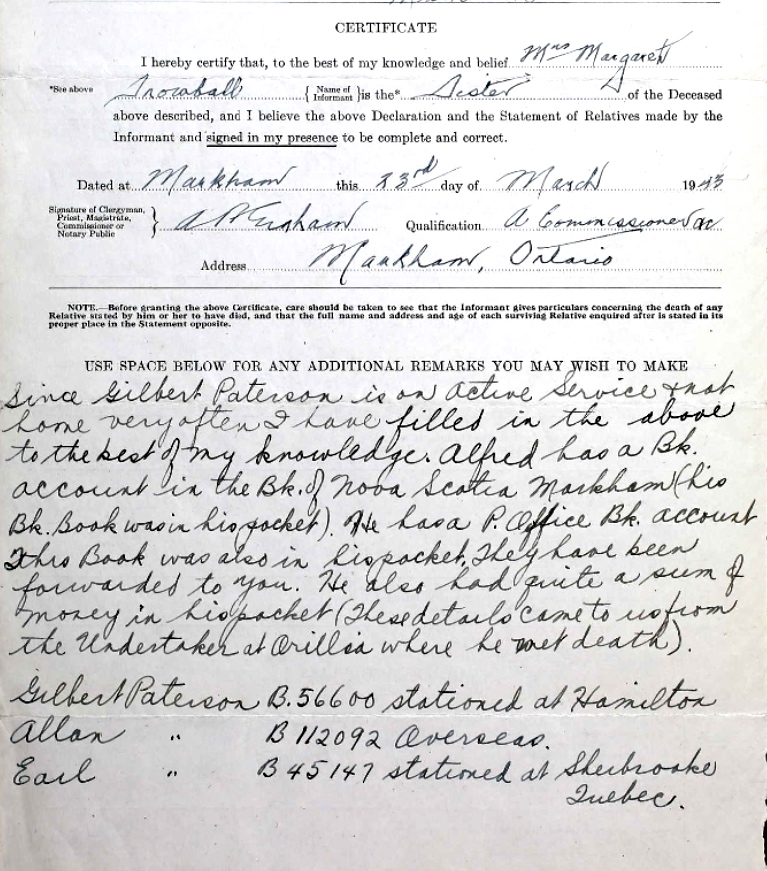 CERTIFICATE
I hereby certify that, to the best of my knowledge and belief Mrs Margaret
*See above Trowball { Name of Informant } is the* Sister of the Deceased
above described, and I believe the above Declaration and the Statement of Relatives made by the
Informant and signed in my presence to be complete and correct.
Dated at Markham this 23rd day of March 1943
Signature of Clergyman, Priest, Magistrate, Commissioner or Notary Public } Qualification A Commissioner
Address Markham, Ontario
NOTE.—Before granting the above Certificate, care should be taken to see that the Informant gives particulars concerning the death of any
Relative stated by him or her to have died, and that the full name and address and age of each surviving Relative enquired after is stated in its
proper place in the Statement opposite.
USE SPACE BELOW FOR ANY ADDITIONAL REMARKS YOU MAY WISH TO MAKE
Since Gilbert Paterson is on Active Service & not
home very often I have filled in the above
to the best of my knowledge. Alfred has a Bk.
account in the Bk. of Nova Scotia Markham (his
Bk. Book was in his pocket). He has a P. Office Bk. account
this Book was also in his pocket. They have been
forwarded to you. He also had quite a sum of
money in his pocket (These details came to us from
the Undertaker at Orillia where he met death).
Gilbert Paterson B.56600 stationed at Hamilton
Allan " B 112092 Overseas.
Earl " B 45147 stationed at Sherbrooke
Quebec.